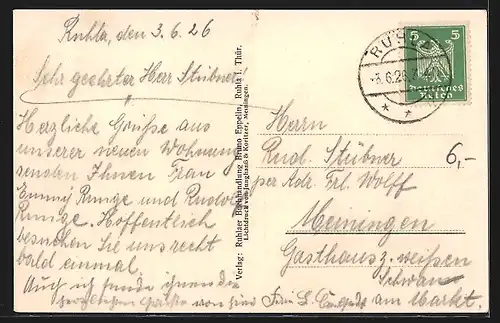 Ruhla, den 3.6.26
Sehr geehrter Herr Stübner
Herzliche Grüße aus
unserer neuen Wohnung
senden Ihnen Frau
Emmy Runge und Rudolf
Runge. Hoffentlich
besuchen Sie uns recht
bald einmal.
Auch ich sende ihnen die
herzlichsten Grüße von hier
Verlag: Ruhlaer Buchhandlung Bruno Eppelin, Ruhla i. Thür.
Lichtdruck von Junghanß & Koritzer, Meiningen.
RUHLA
-3.6.26
5 5
Deutsches
Reich
Herrn
Rud. Stübner
per Adr. Frl. Wolff
Meiningen
Gasthaus z. weißen
Schwan
am Markt.
6,-